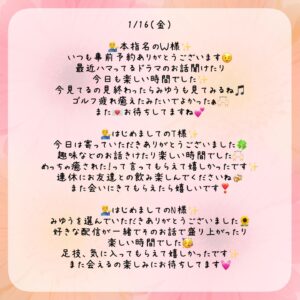 1/16(金)
🙇‍♂️本指名のW様✨
いつも事前予約ありがとうございます😉
最近ハマってるドラマのお話聞けたり
今日も楽しい時間でした✨
今見てるの見終わったらみゆうも見てみるね🎵
ゴルフ疲れ癒えたみたいでよかったぁ
また💌お待ちしてますね💕
🙇‍♂️はじめましてのT様✨
今日は寄っていただきありがとうございました🍀
趣味などのお話きけたり楽しい時間でした
めっちゃ癒された!って言ってもらえて嬉しかったです✨
連休にお友達との飲み楽しんでくださいね🍻
また会いにきてもらえたら嬉しいです❣️
🙇‍♂️はじめましてのN様✨
みゆうを選んでいただきありがとうございました🌻
好きな配信が一緒でそのお話で盛り上がったり
楽しい時間でした🥰
足技、気に入ってもらえて嬉しかったです✨
また会える楽しみにお待ちしてます💓